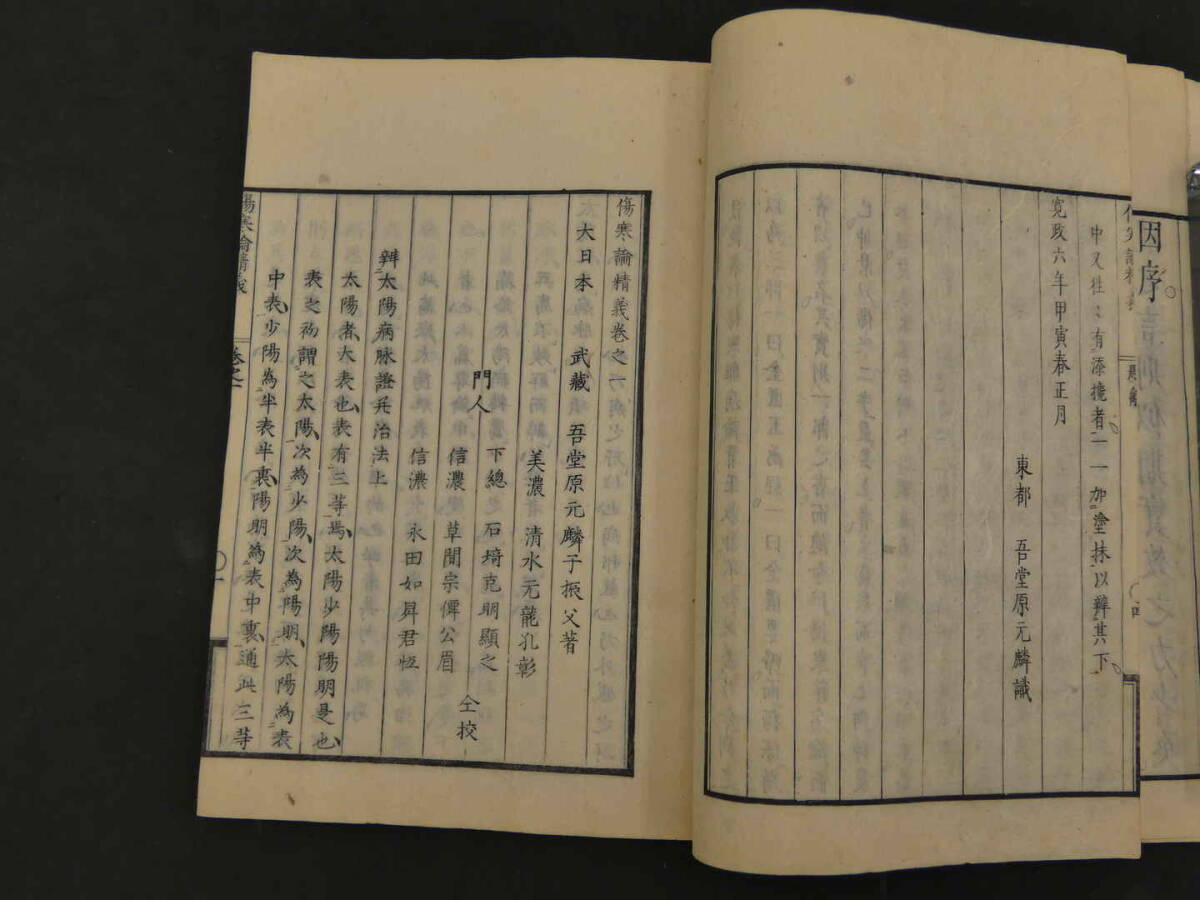 因序
中又往々有添攙者一一加塗抹以辨其下
寛政六年甲寅春正月
東都 吾堂原元麟識
傷寒論精義巻之一
大日本 武藏 吾堂原元麟子振父著
美濃 清水元龍孔彰
門人 下總 石埼克明顯之
信濃 草間宗儁公眉
仝挍
信濃 永田如昇君恆
辨太陽病脉證并治法上
太陽者大表也表有三等焉太陽少陽陽明是也
表之初謂之太陽次為少陽次為陽明太陽為表
中表少陽為半表半裏陽明為表中裏通此三等
傷寒論精義
巻之一